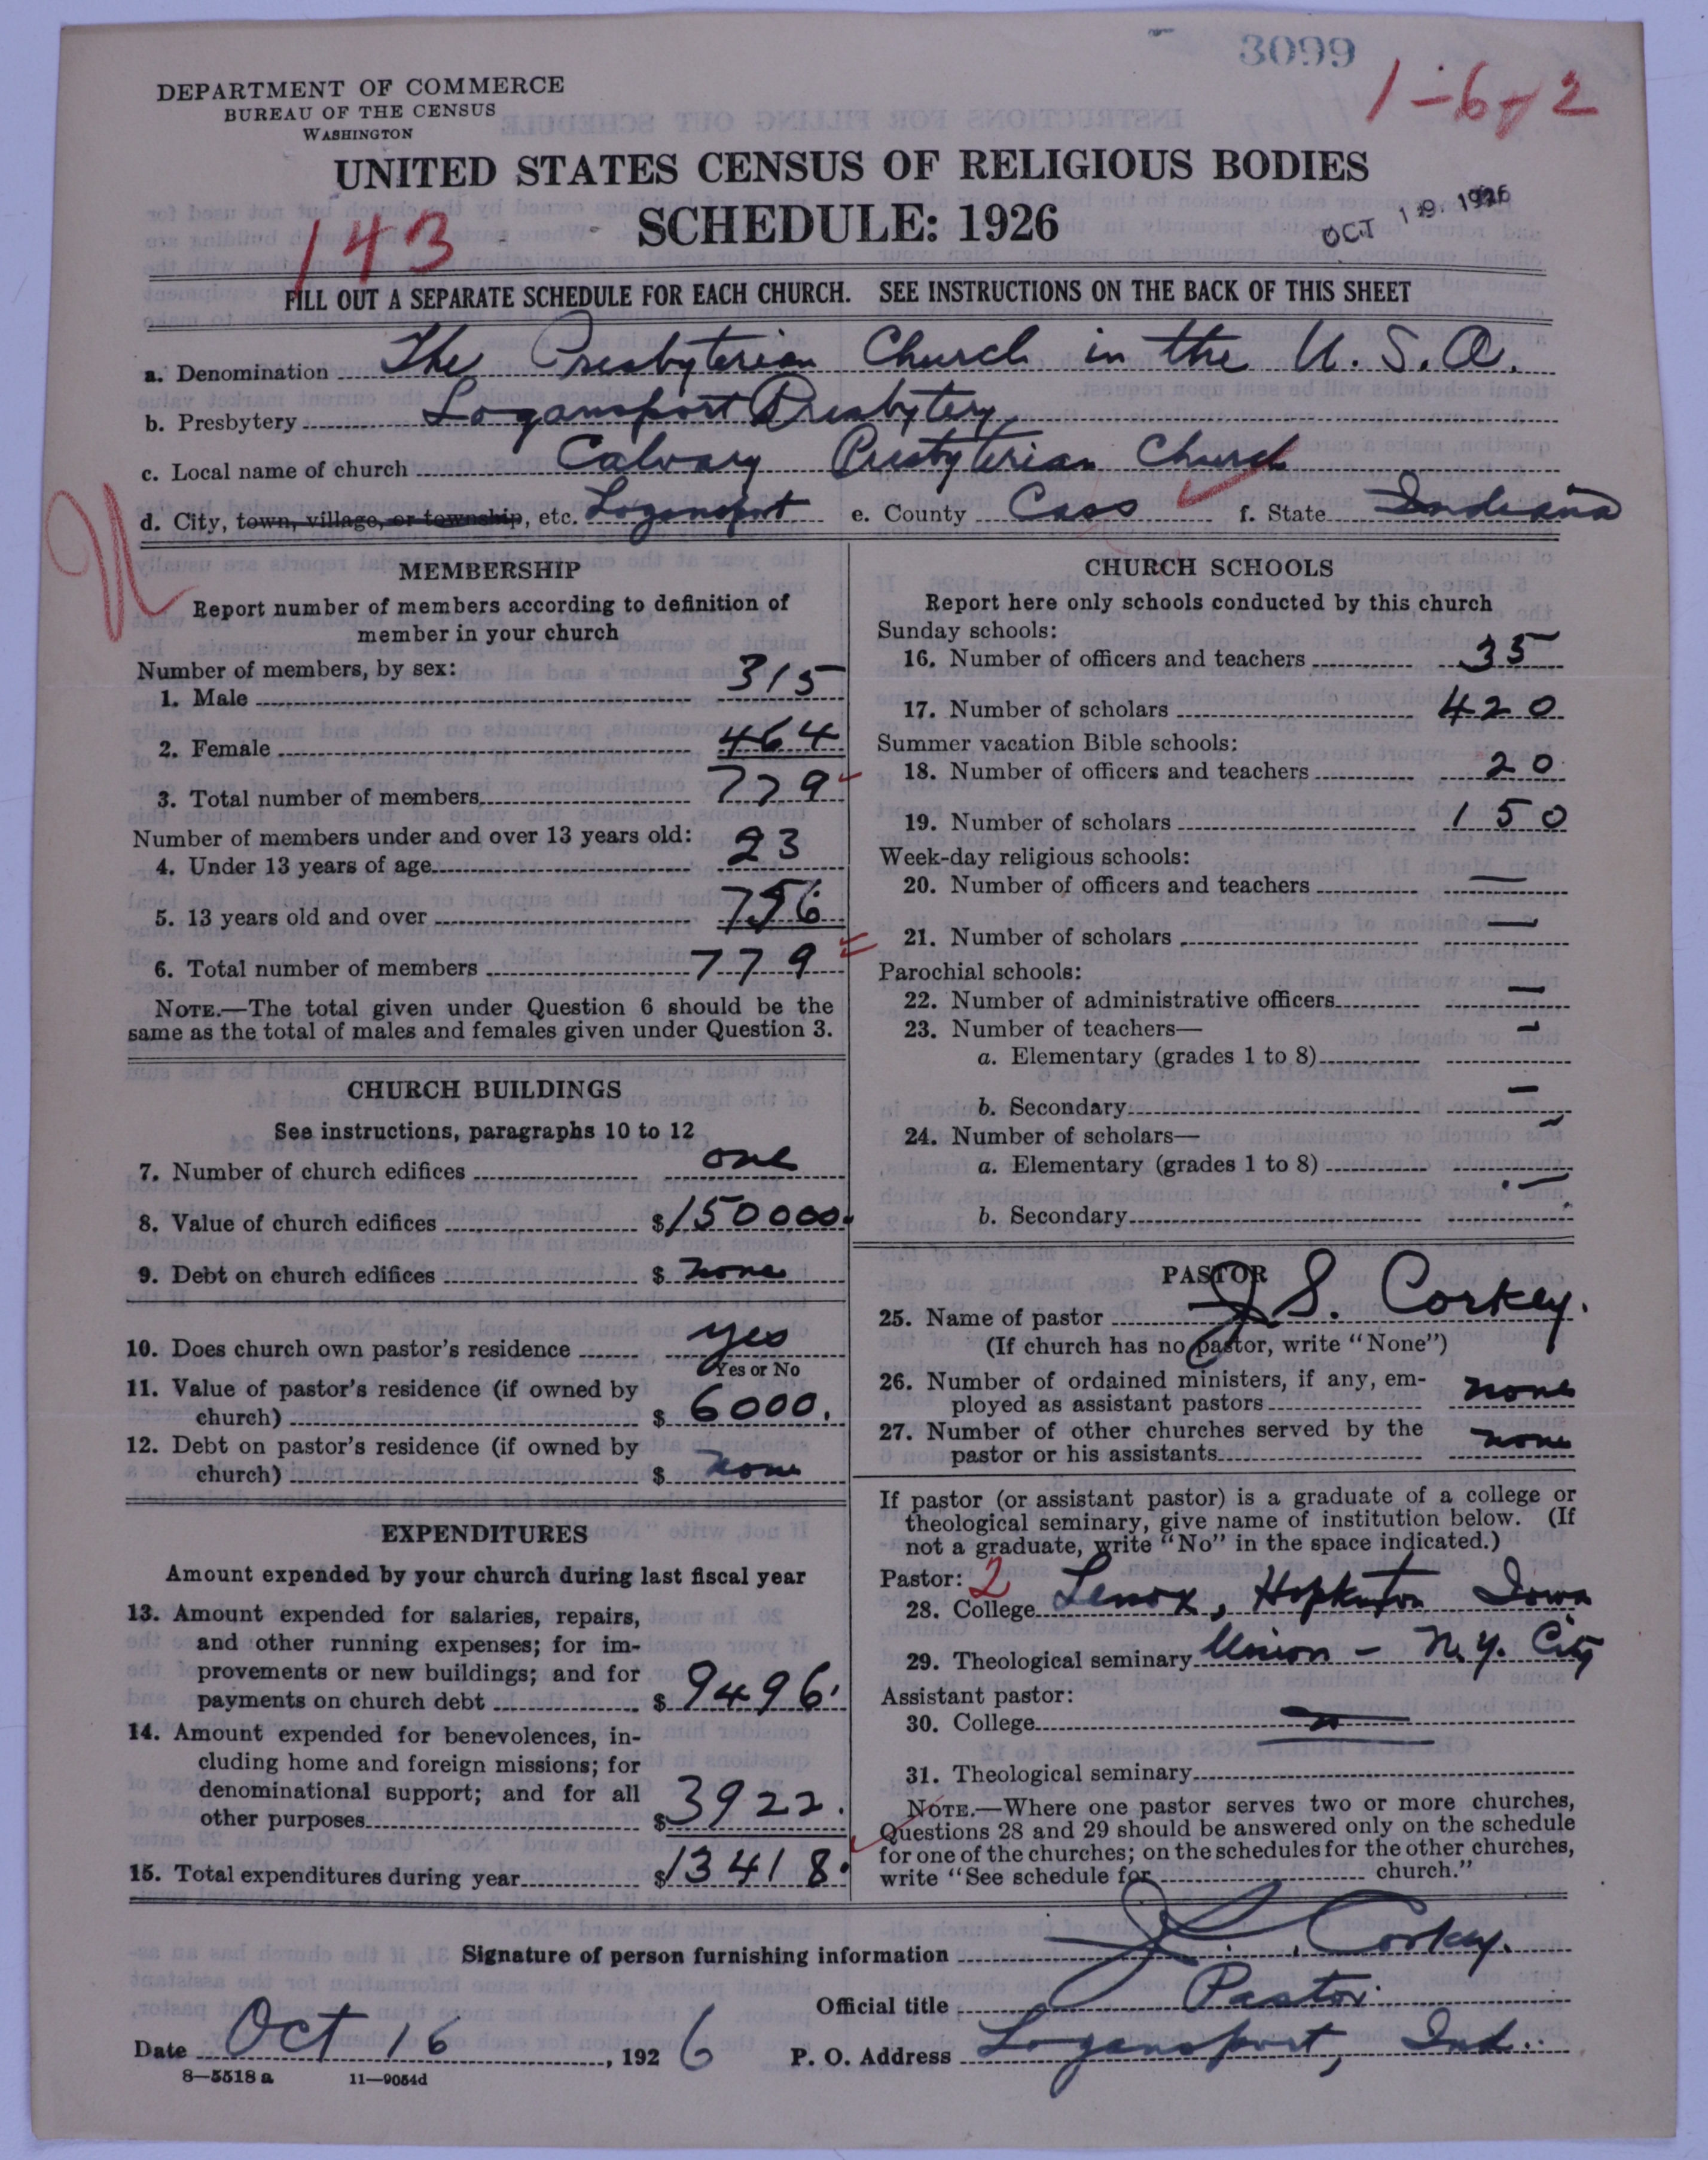 3099
1-6-2
DEPARTMENT OF COMMERCE
BUREAU OF THE CENSUS
WASHINGTON
UNITED STATES CENSUS OF RELIGIOUS BODIES
SCHEDULE: 1926
OCT 19. 1926
143
FILL OUT A SEPARATE SCHEDULE FOR EACH CHURCH. SEE INSTRUCTIONS ON THE BACK OF THIS SHEET
a. Denomination The Presbyterian Church in the U.S.A.
b. Presbytery Logansport Presbytery
c. Local name of church Calvary Presbyterian Church
d. City, town, village, or township, etc. Logansport e. County Cass f. State Indiana
MEMBERSHIP
Report number of members according to definition of
member in your church
Number of members, by sex:
1. Male 315
2. Female 464
3. Total number of members 779
Number of members under and over 13 years old:
4. Under 13 years of age 23
5. 13 years old and over 756
6. Total number of members 779
NOTE.—The total given under Question 6 should be the
same as the total of males and females given under Question 3.
CHURCH BUILDINGS
See instructions, paragraphs 10 to 12
7. Number of church edifices one
8. Value of church edifices $150000.
9. Debt on church edifices $ none
10. Does church own pastor's residence yes
Yes or No
11. Value of pastor's residence (if owned by
church) $ 6000.
12. Debt on pastor's residence (if owned by
church) $ none
EXPENDITURES
Amount expended by your church during last fiscal year
13. Amount expended for salaries, repairs,
and other running expenses; for im-
provements or new buildings; and for
payments on church debt $ 9496.
14. Amount expended for benevolences, in-
cluding home and foreign missions; for
denominational support; and for all
other purposes $ 3922.
15. Total expenditures during year $13418.
CHURCH SCHOOLS
Report here only schools conducted by this church
Sunday schools:
16. Number of officers and teachers 35
17. Number of scholars 420
Summer vacation Bible schools:
18. Number of officers and teachers 20
19. Number of scholars 150
Week-day religious schools:
20. Number of officers and teachers —
21. Number of scholars —
Parochial schools:
22. Number of administrative officers —
23. Number of teachers—
a. Elementary (grades 1 to 8) —
b. Secondary —
24. Number of scholars—
a. Elementary (grades 1 to 8) —
b. Secondary —
PASTOR
25. Name of pastor J S. Corkey.
(If church has no pastor, write "None")
26. Number of ordained ministers, if any, em-
ployed as assistant pastors none
27. Number of other churches served by the
pastor or his assistants none
If pastor (or assistant pastor) is a graduate of a college or
theological seminary, give name of institution below. (If
not a graduate, write "No" in the space indicated.)
Pastor: 2
28. College Lenox, Hopkinton Iowa
29. Theological seminary Union – N.Y. City
Assistant pastor:
30. College
31. Theological seminary
NOTE.—Where one pastor serves two or more churches,
Questions 28 and 29 should be answered only on the schedule
for one of the churches; on the schedules for the other churches,
write "See schedule for church."
Signature of person furnishing information J S. Corkey.
Official title Pastor
Date Oct 16, 1926 P. O. Address Logansport, Ind.
8—5518 a 11—9054d